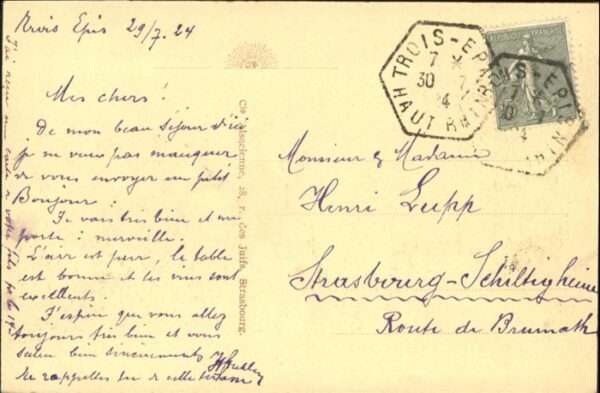 Trois Epis 29/7.24
Mes chers!
De mon beau séjour d'ici
je ne veux pas manquer
de vous envoyer un petit
Bonjour.
Je vais très bien et me
porte à merveille.
L'air est pur, la table
est bonne et les vins sont
excellents.
J'espère que vous allez
toujours très bien et vous
salue bien sincèrement
J'ai
carte
votre fils
Cie Alsacienne, 28, r. des Juifs, Strasbourg.
TROIS-EPIS
7 *
30 7
24
HAUT RHIN
REPUBLIQUE FRANÇAISE
Monsieur & Madame
Henri Lupp
Strasbourg-Schiltigheim
Route de Brumath